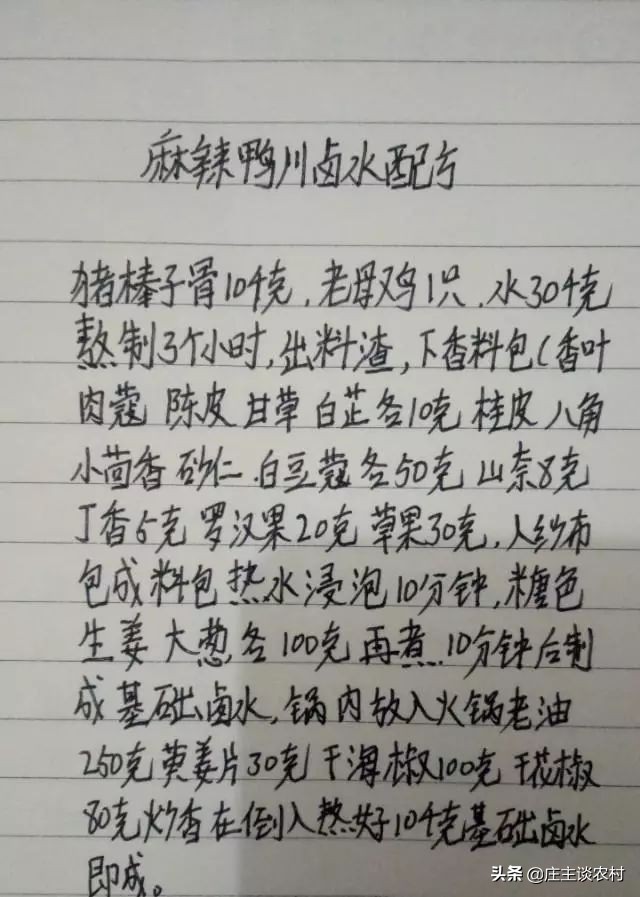 麻辣鸭川卤水配方
猪棒子骨10千克,老母鸡1只,水30千克
熬制3个小时,出料渣,下香料包(香叶
肉蔻 陈皮 甘草 白芷各10克 桂皮 八角
小茴香 砂仁.白豆蔻各50克 山奈8克
丁香5克 罗汉果20克 草果30克,入纱布
包成料包热水浸泡10分钟,糖色
生姜 大葱各100克再煮10分钟后制
成基础卤水,锅内放入火锅老油
250克黄姜片30克干海椒100克干花椒
80克炒香在倒入熬好10千克基础卤水
即成。
头条 @庄主谈农村